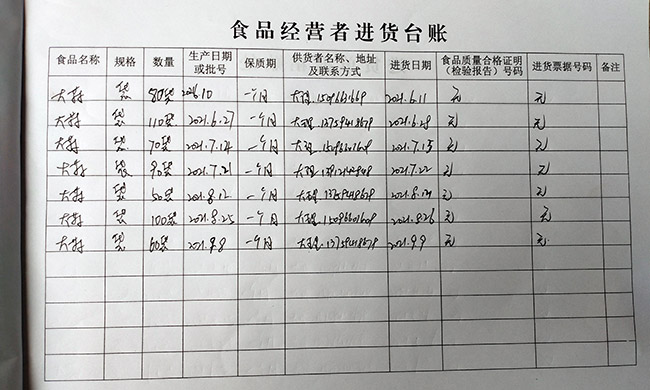 食品经营者进货台账
食品名称 规格 数量 生产日期或批号 保质期 供货者名称、地址及联系方式 进货日期 食品质量合格证明(检验报告)号码 进货票据号码 备注
大蒜 袋 80袋 一个月 2021.6.11 无 无
大蒜 袋 110袋 2021.6.27 一个月 2021.6.28 无 无
大蒜 袋 70袋 2021.7.14 一个月 2021.7.15 无 无
大蒜 袋 90袋 2021.7.21 一个月 2021.7.22 无 无
大蒜 袋 50袋 2021.8.12 一个月 无 无
大蒜 袋 100袋 2021.8.25 一个月 2021.8.26 无 无
大蒜 袋 60袋 2021.9.8 一个月 2021.9.9 无 无